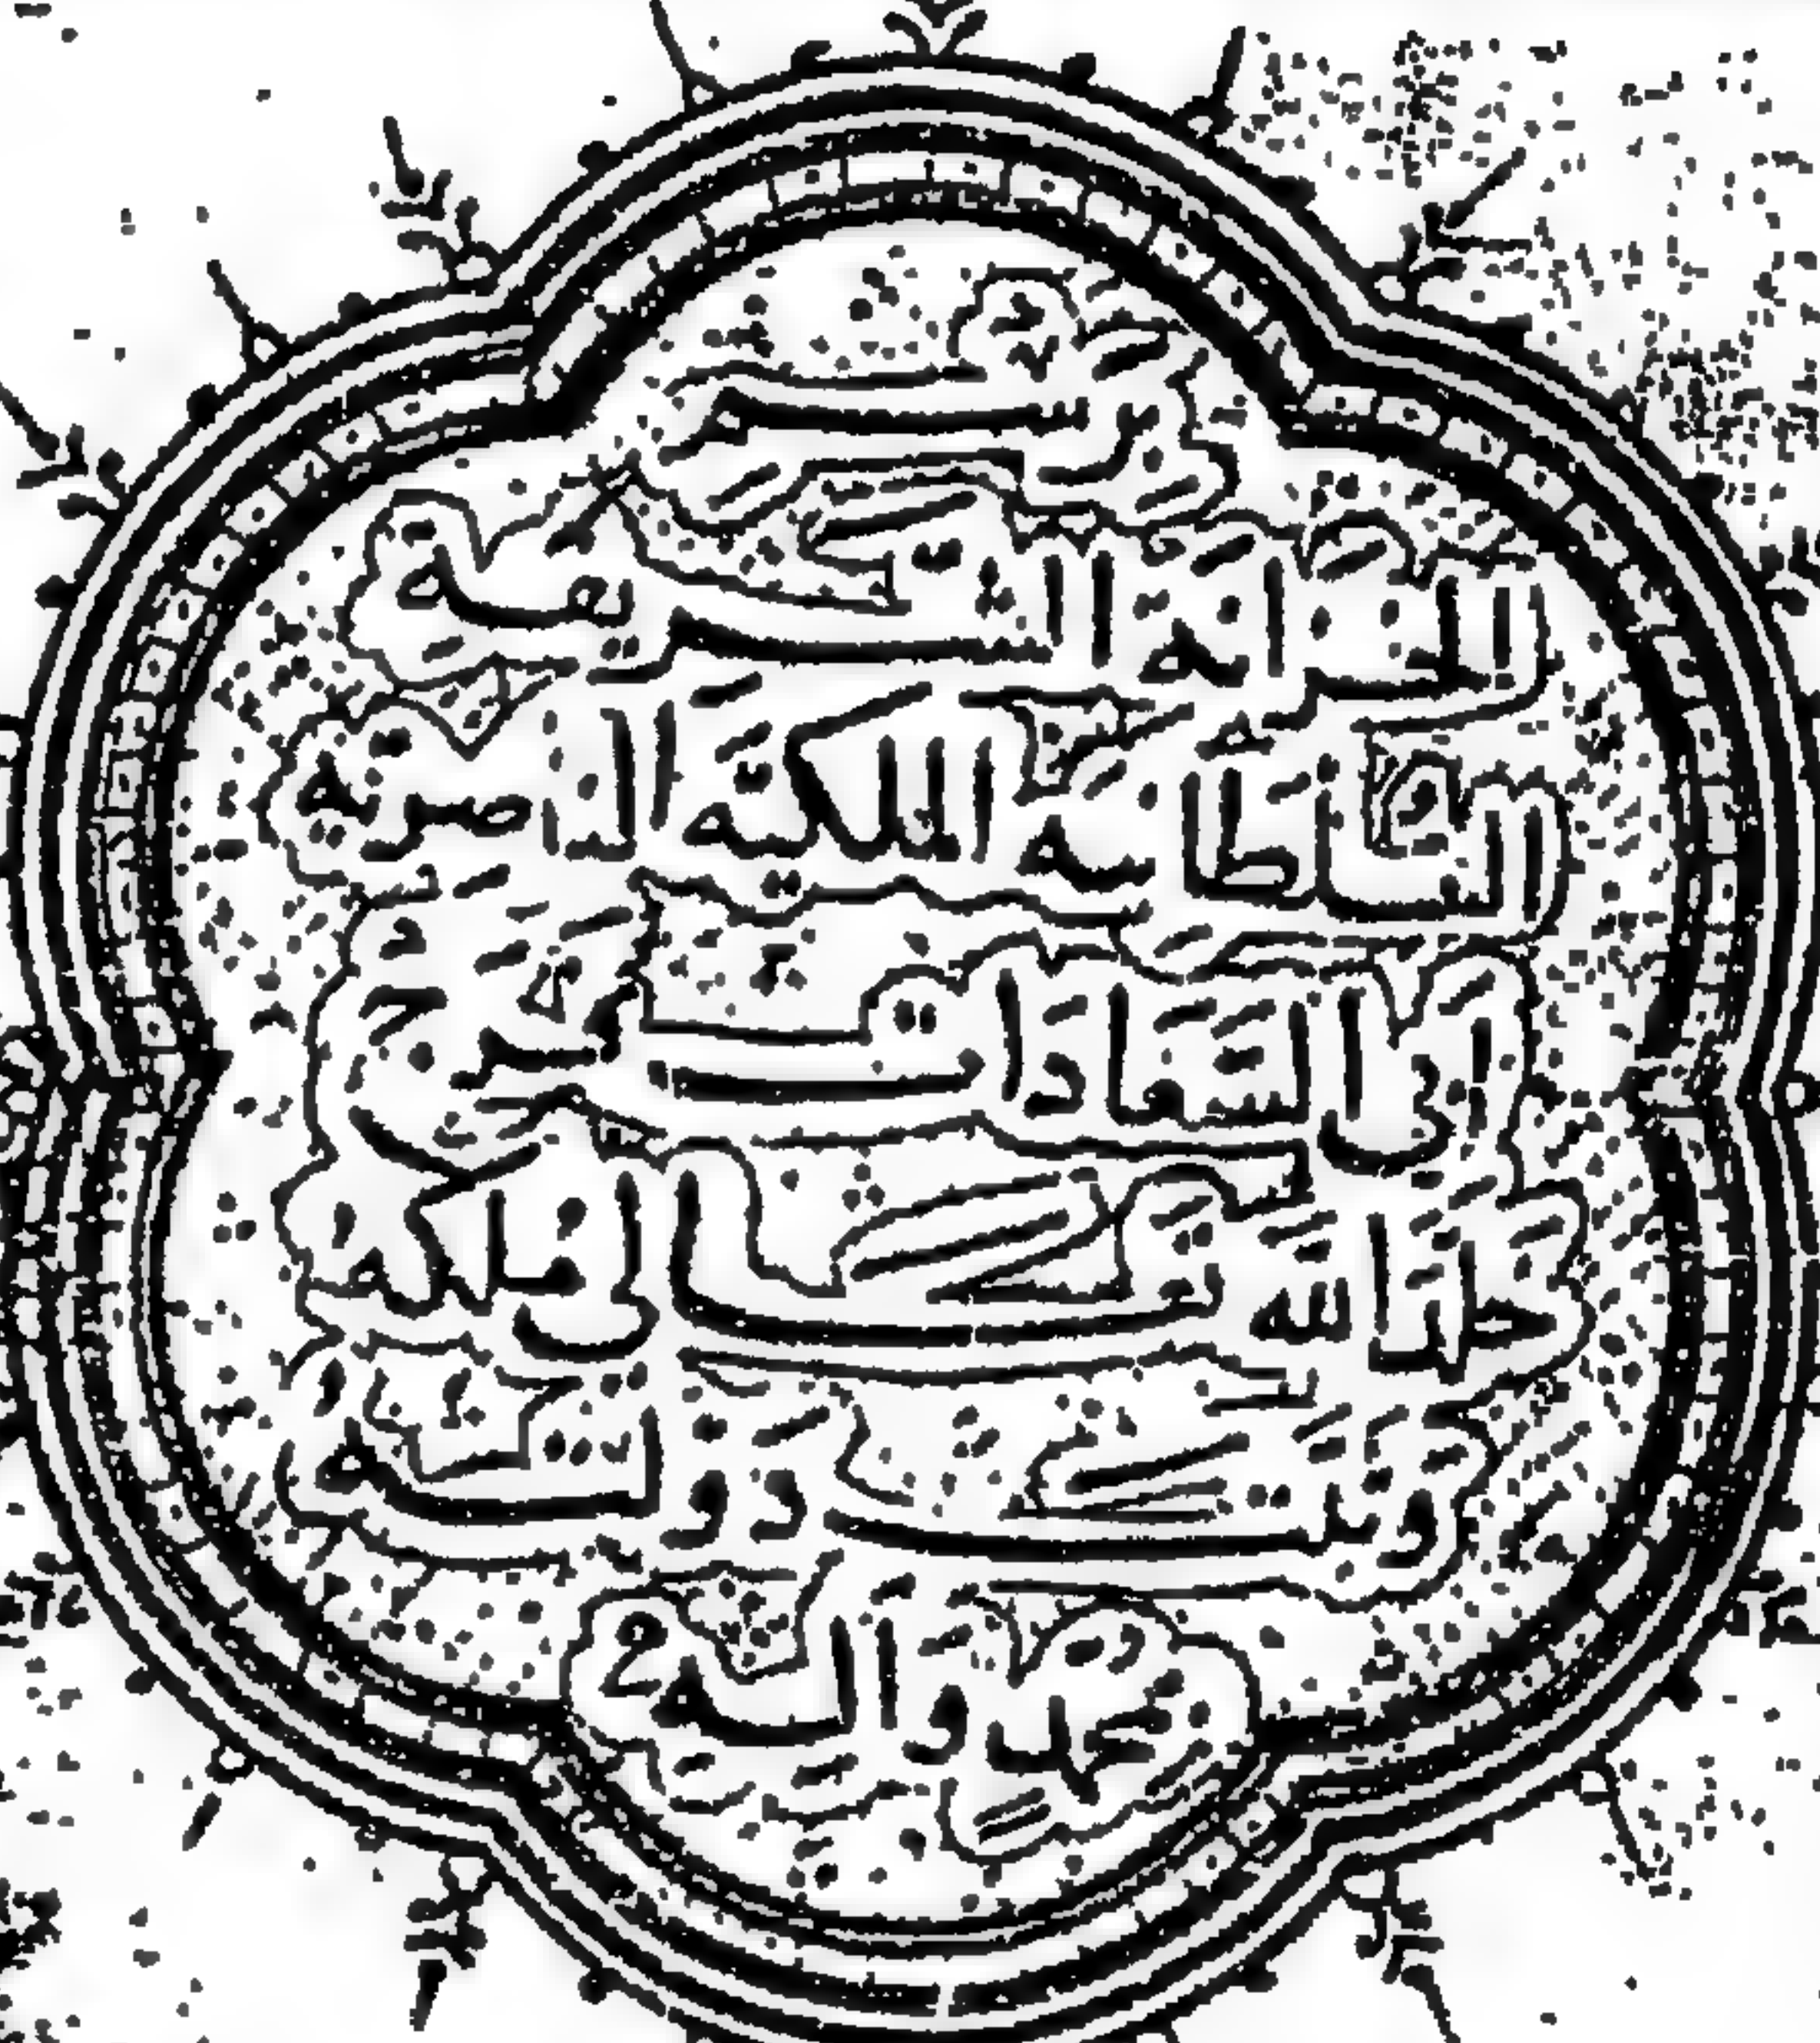 برسم
الخزانه الشريفه
السلطانيه الملكيه الناصريه
ابى السعادات فرج
خلد الله تعالى ملكه
وثبت دولته
بمحمد واله